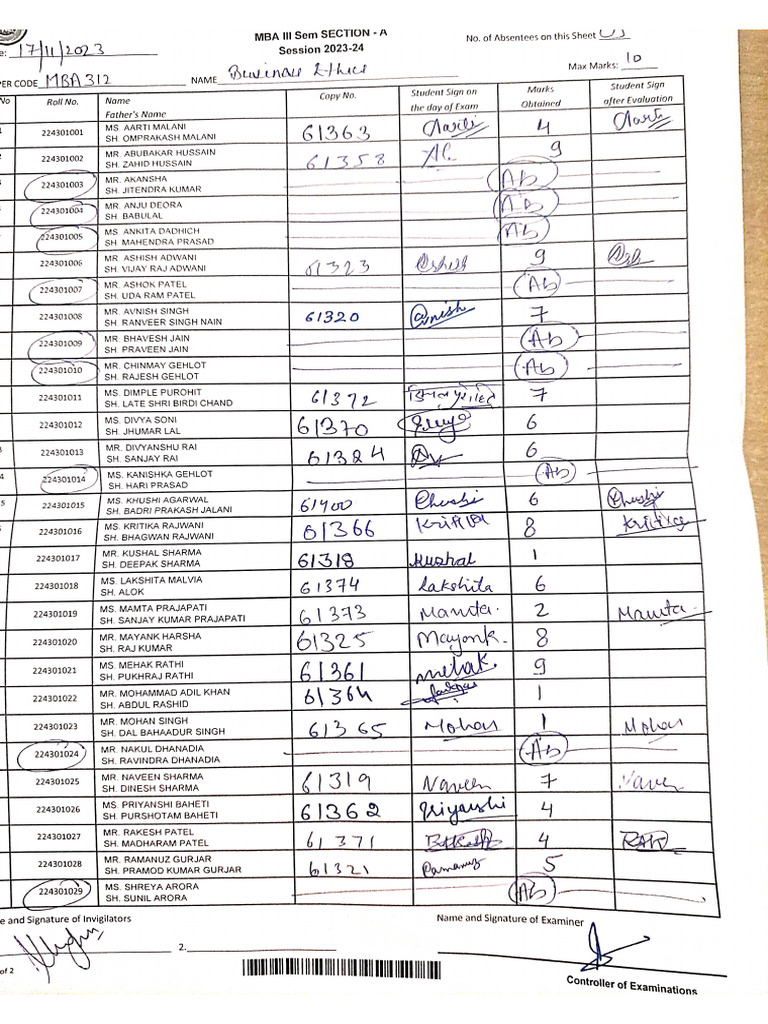 MBA III Sem SECTION - A
Session 2023-24
No. of Absentees on this Sheet
e: 17/11/2023
Max Marks: 10
PER CODE MBA 312 NAME Business Ethics
No Roll No. Name Father's Name Copy No. Student Sign on the day of Exam Marks Obtained Student Sign after Evaluation
224301001 MS. AARTI MALANI 61363 Aarti 4 Aarti
SH. OMPRAKASH MALANI
224301002 MR. ABUBAKAR HUSSAIN 61358 9
SH. ZAHID HUSSAIN
224301003 MR. AKANSHA Ab
SH. JITENDRA KUMAR
224301004 MR. ANJU DEORA Ab
SH. BABULAL
224301005 MS. ANKITA DADHICH Ab
SH. MAHENDRA PRASAD
224301006 MR. ASHISH ADWANI 61323 9
SH. VIJAY RAJ ADWANI
224301007 MR. ASHOK PATEL Ab
SH. UDA RAM PATEL
224301008 MR. AVNISH SINGH 61320 Avnish 7
SH. RANVEER SINGH NAIN
224301009 MR. BHAVESH JAIN Ab
SH. PRAVEEN JAIN
224301010 MR. CHINMAY GEHLOT Ab
SH. RAJESH GEHLOT
224301011 MS. DIMPLE PUROHIT 61372 7
SH. LATE SHRI BIRDI CHAND
224301012 MS. DIVYA SONI 61370 6
SH. JHUMAR LAL
224301013 MR. DIVYANSHU RAI 61324 6
SH. SANJAY RAI
224301014 MS. KANISHKA GEHLOT Ab
SH. HARI PRASAD
224301015 MS. KHUSHI AGARWAL 61400 Khushi 6 Khushi
SH. BADRI PRAKASH JALANI
224301016 MS. KRITIKA RAJWANI 61366 Kritika 8 Kritika
SH. BHAGWAN RAJWANI
224301017 MR. KUSHAL SHARMA 61318 Kushal 1
SH. DEEPAK SHARMA
224301018 MS. LAKSHITA MALVIA 61374 Lakshita 6
SH. ALOK
224301019 MS. MAMTA PRAJAPATI 61373 Mamta 2 Mamta
SH. SANJAY KUMAR PRAJAPATI
224301020 MR. MAYANK HARSHA 61325 Mayank 8
SH. RAJ KUMAR
224301021 MS. MEHAK RATHI 61361 Mehak 9
SH. PUKHRAJ RATHI
224301022 MR. MOHAMMAD ADIL KHAN 61364 1
SH. ABDUL RASHID
224301023 MR. MOHAN SINGH 61365 Mohan 1 Mohan
SH. DAL BAHAADUR SINGH
224301024 MR. NAKUL DHANADIA Ab
SH. RAVINDRA DHANADIA
224301025 MR. NAVEEN SHARMA 61319 Naveen 7 Naveen
SH. DINESH SHARMA
224301026 MS. PRIYANSHI BAHETI 61362 Priyanshi 4
SH. PURSHOTAM BAHETI
224301027 MR. RAKESH PATEL 61371 4
SH. MADHARAM PATEL
224301028 MR. RAMANUZ GURJAR 61321 Ramanuz 5
SH. PRAMOD KUMAR GURJAR
224301029 MS. SHREYA ARORA Ab
SH. SUNIL ARORA
e and Signature of Invigilators Name and Signature of Examiner
2.
of 2 Controller of Examinations